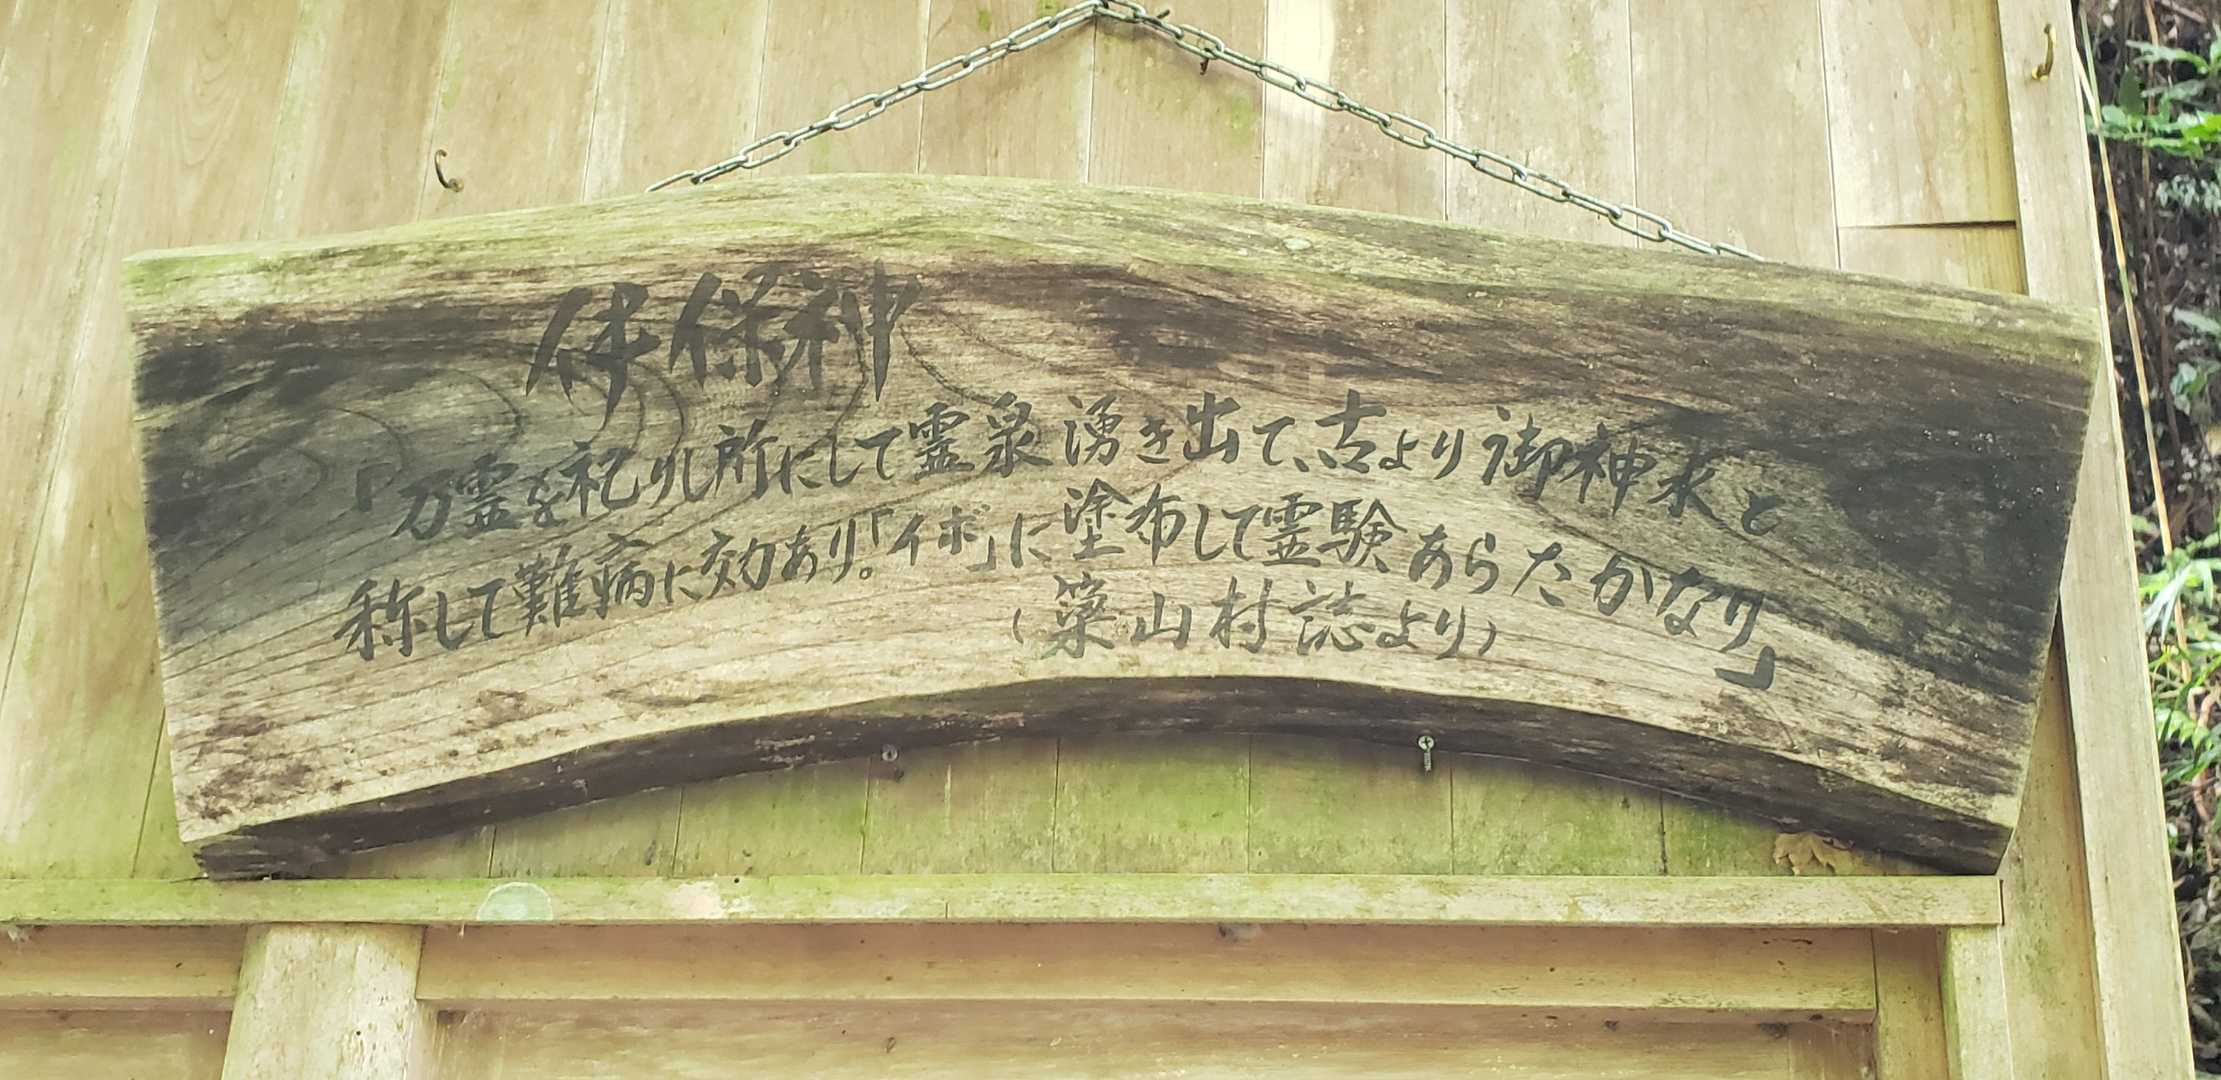 伊保神
「万霊を祀りし所にして霊泉湧き出て、古より御神水と
称して難病に効あり。「イボ」に塗布して霊験あらたかなり」
(築山村誌より)